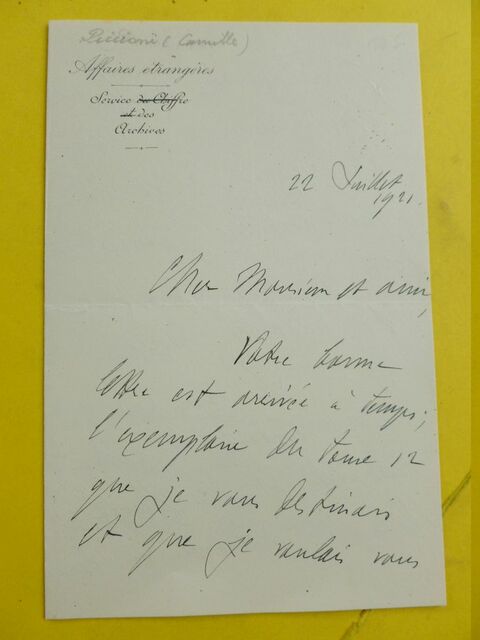 Piccioni (Camille)
Affaires étrangères
Service du Chiffre
et des
Archives
22 Juillet
1921.
Cher Monsieur et ami,
Votre bonne
lettre est arrivée à temps;
l'exemplaire du tome 12
que je vous destinais
et que je voulais vous